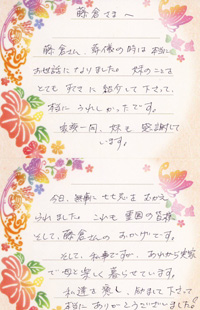 藤倉さまへ
藤倉さん、葬儀の時は本当に
お世話になりました。妹のことを
とても すてきに紹介して下さって、
本当に うれしかったです。
家族一同、妹も 感謝して
います。
今日、無事に七七忌をむかえ
られました。これも 皆様
そして、藤倉さんの おかげです。
そして、私事ですが、あれから実家
で母と楽しく暮らせています。
私達を癒し、励まして下さって
本当に ありがとうございました。